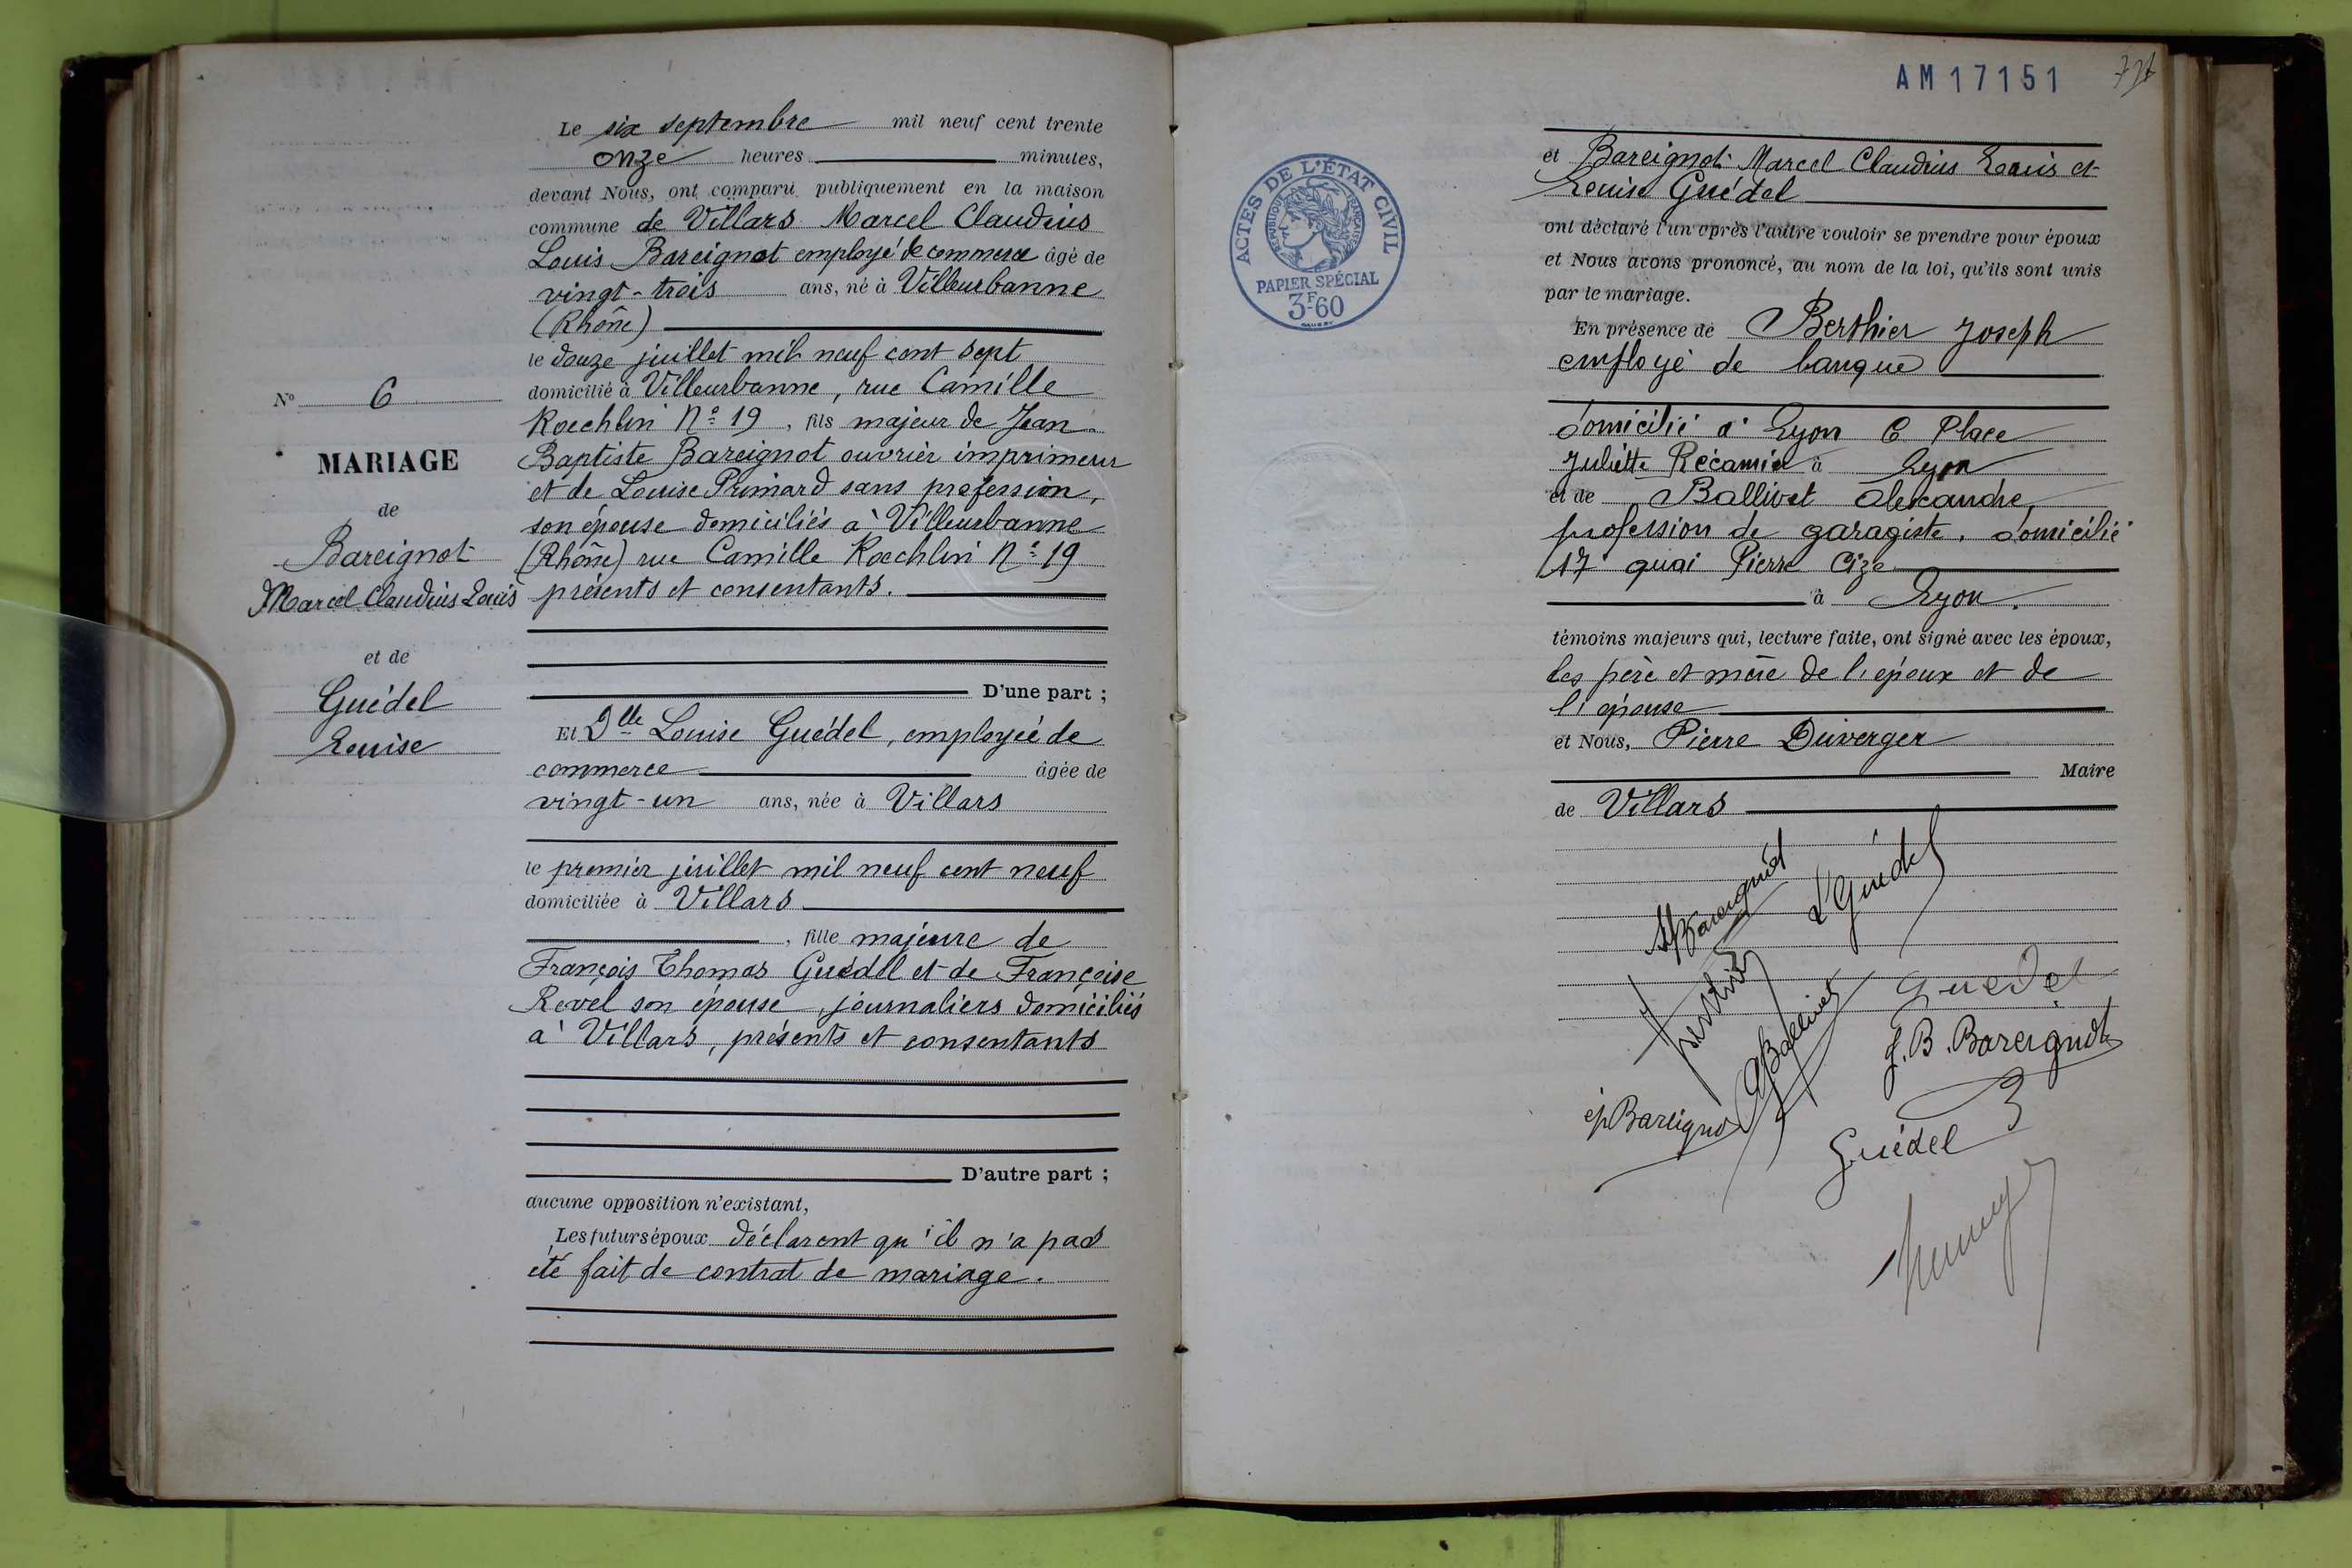 N° 6
MARIAGE
de
Bareignot
Marcel Claudius Louis
et de
Guédel
Louise
Le six septembre mil neuf cent trente
onze heures minutes,
devant Nous, ont comparu publiquement en la maison
commune de Villars Marcel Claudius
Louis Bareignot employé de commerce âgé de
vingt-trois ans, né à Villeurbanne
(Rhône)
le douze juillet mil neuf cent sept
domicilié à Villeurbanne, rue Camille
Koechlin N° 19, fils majeur de Jean
Baptiste Bareignot ouvrier imprimeur
et de Louise Primard sans profession,
son épouse domiciliés à Villeurbanne
(Rhône) rue Camille Koechlin N° 19
présents et consentants.
D'une part ;
Et Dlle Louise Guédel, employée de
commerce âgée de
vingt-un ans, née à Villars
le premier juillet mil neuf cent neuf
domiciliée à Villars
, fille majeure de
François Thomas Guédel et de Françoise
Revel son épouse, journaliers domiciliés
à Villars, présents et consentants
D'autre part ;
aucune opposition n'existant,
Les futurs époux déclarent qu'il n'a pas
été fait de contrat de mariage.
AM17151
ACTES DE L'ÉTAT CIVIL
RÉPUBLIQUE FRANÇAISE
PAPIER SPÉCIAL
3F60
et Bareignot Marcel Claudius Louis et
Louise Guédel
ont déclaré l'un après l'autre vouloir se prendre pour époux
et Nous avons prononcé, au nom de la loi, qu'ils sont unis
par le mariage.
En présence de Berthier Joseph
employé de banque
domicilié à Lyon 6 Place
Juliette Récamier à Lyon
et de Ballivet Alexandre
profession de garagiste, domicilié
17 quai Pierre Cize
à Lyon.
témoins majeurs qui, lecture faite, ont signé avec les époux,
les père et mère de l'époux et de
l'épouse
et Nous, Pierre Duverger
Maire
de Villars
M Bareignot
L Guédel
Guedel
A Ballivet
J. B. Bareignot
ép Bareignot
Guédel